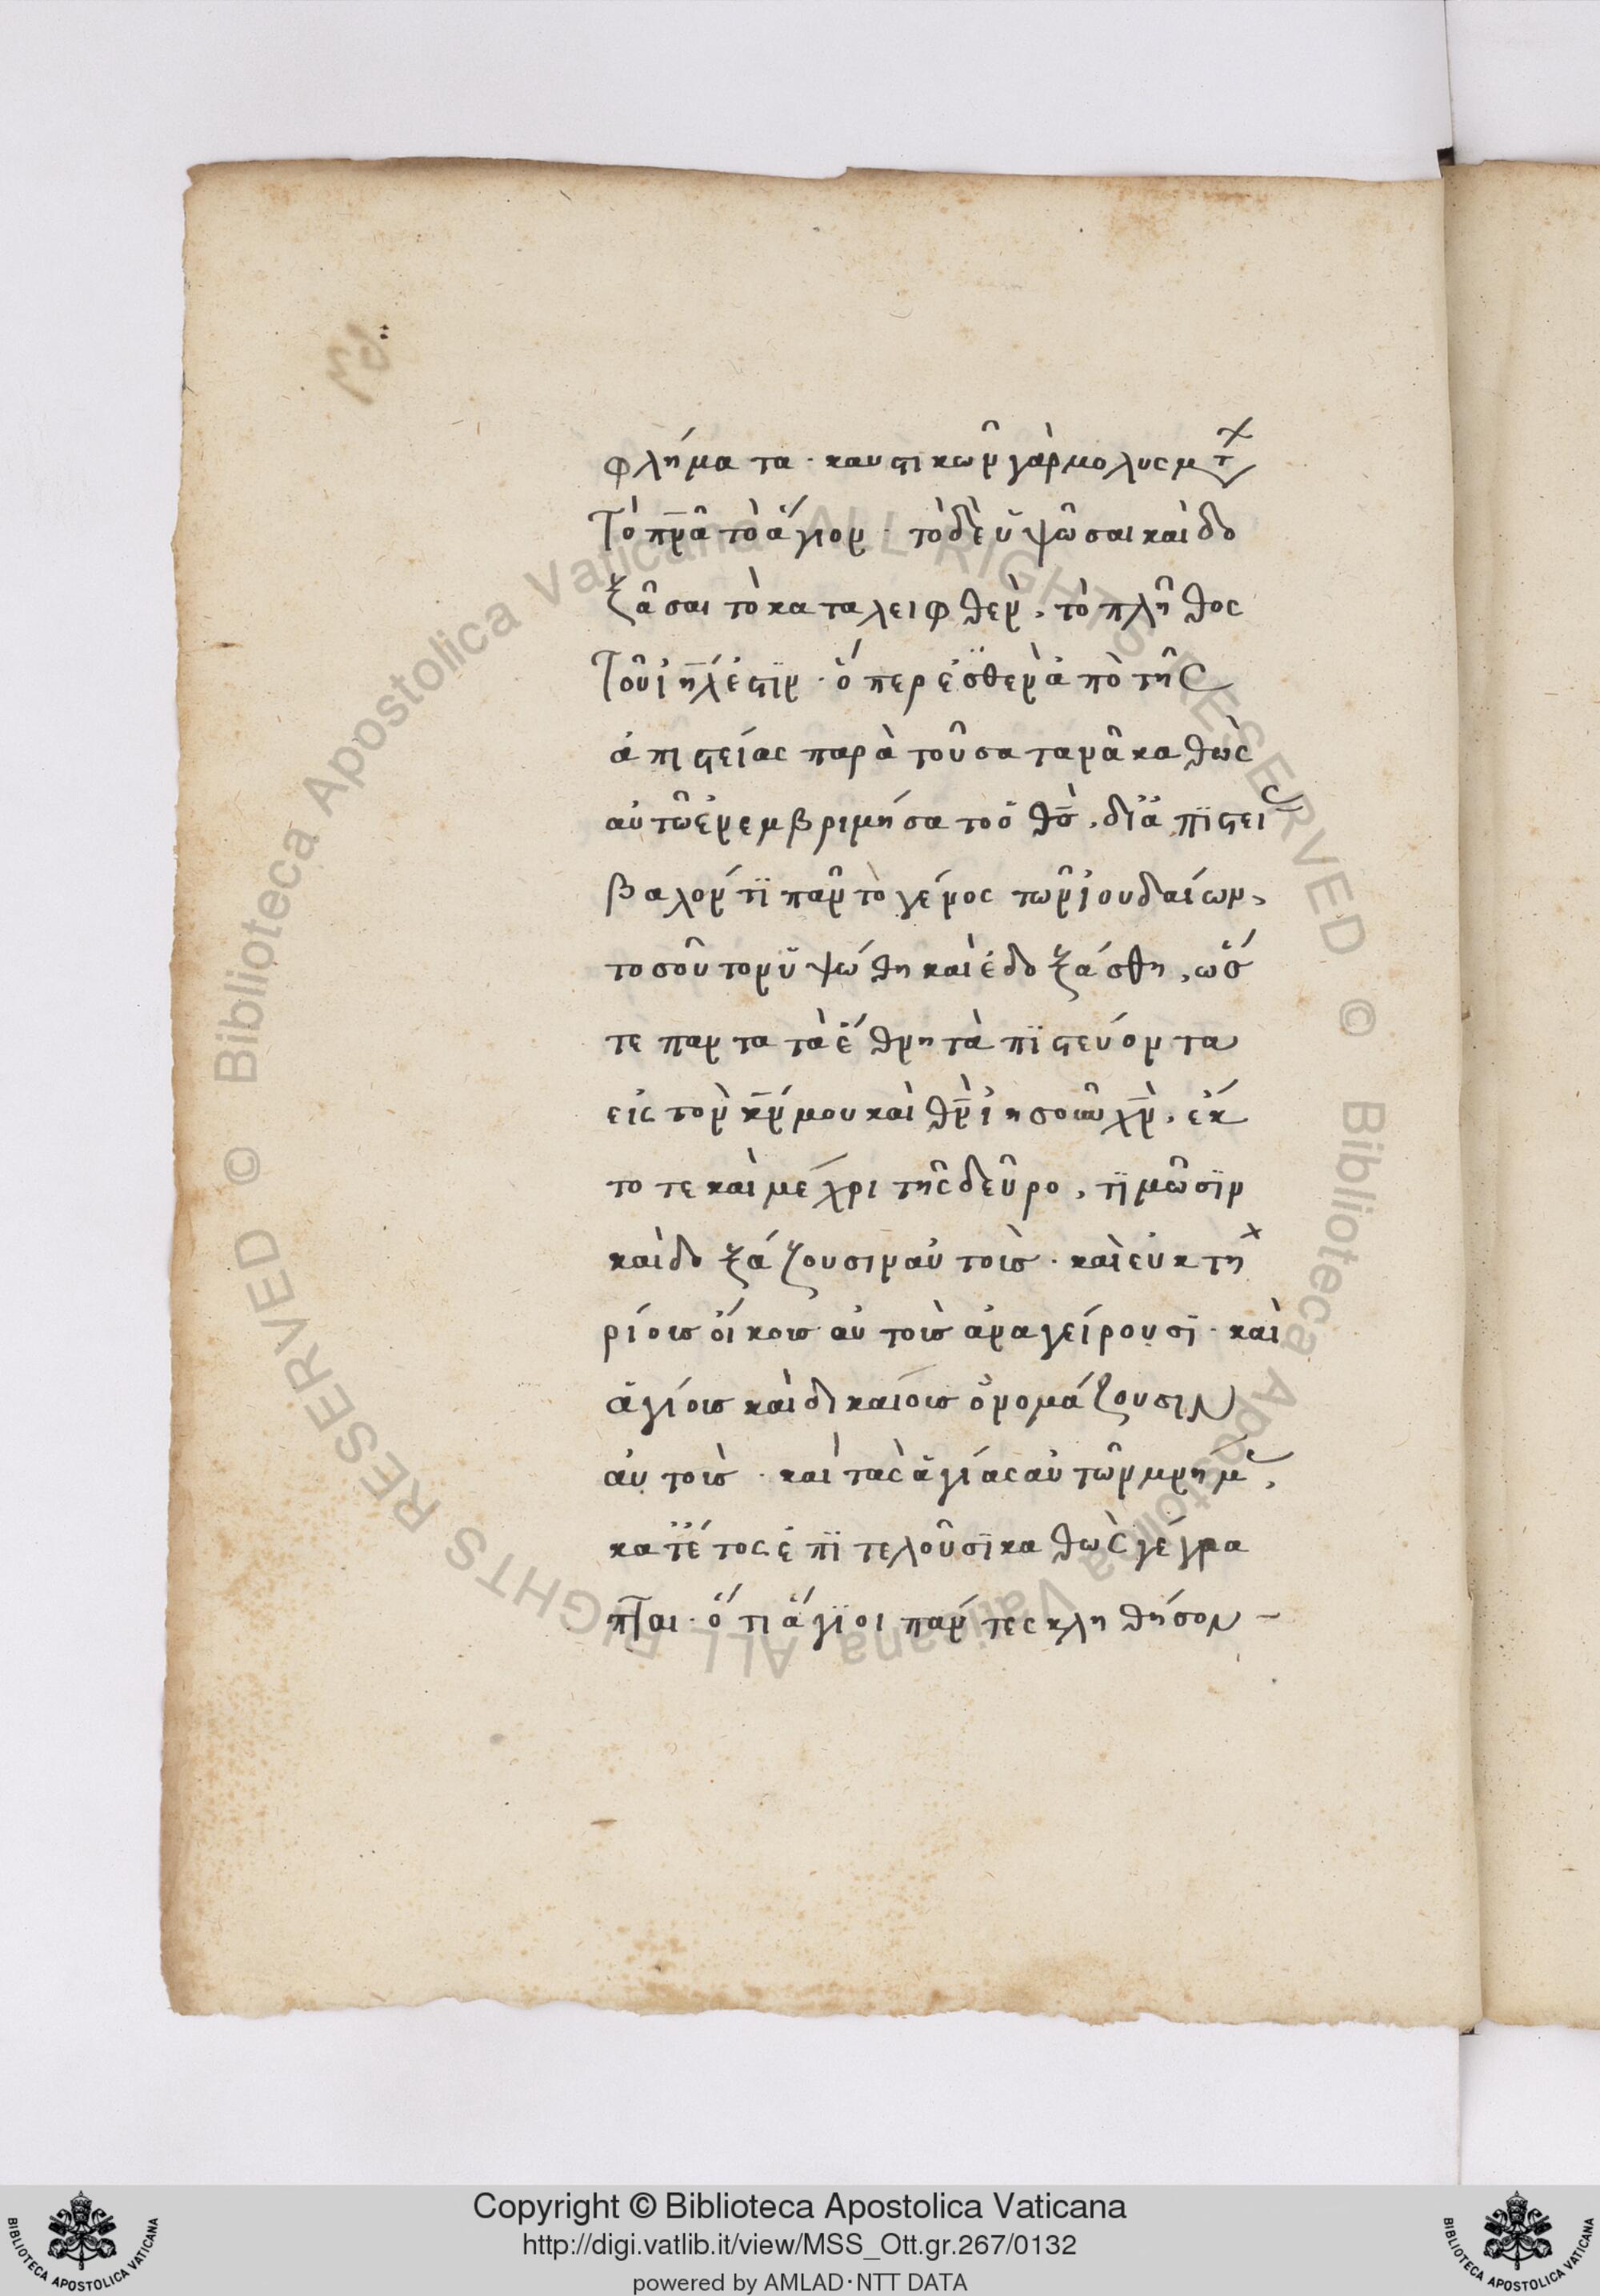 φλήματα · καυστικῶν γὰρ μολυσμ
τὸ π̅ν̅α τὸ ἅγιον · τὸ δὲ ὑψῶσαι καὶ δο
ξᾶσαι τὸ καταλειφθὲν, τὸ πλῆθος
τοῦ ἰη̅λ ἐστϊν · ὅπερ
ἀπιστείας παρὰ τοῦ σατανᾶ καθὼς
αὐτῶ ἐνεμβριμήσατο ὁ θ̅σ̅, δϊ ἀπϊστεί
βαλόν τϊ πᾶν τὸ γένος τῶν ἰουδαίων,
τοσοῦτον ὑψώθη καὶ ἐδοξάσθη, ὥσ
τε παντα τὰ ἔθνη τὰ πϊστεύοντα
εἰς τὸν κ̅ν̅ μου καὶ θ̅ν̅ ἰησοῦν χ̅ν̅, ἔκ
τοτε καὶ μέχρι τῆς δεῦρο, τϊμῶσϊν
καὶ δοξάζουσιν αὐτοὶσ · καὶ εὐκτη
ρίοισ οἴκοισ αὐτοὶσ ἀναγείρουσϊ · καὶ
ἁγίοισ καὶ δικαίοισ ὀνομάζουσιν
αὐτοὶσ · καὶ τὰς ἁγίας αὐτῶν μνήμ,
κατ ἔτος ἐπϊτελοῦσϊ καθὼς γέγρα
πται · ὅτι ἅγϊοι πάντες κληθήσον -
Copyright © Biblioteca Apostolica Vaticana
http://digi.vatlib.it/view/MSS_Ott.gr.267/0132
powered by AMLAD·NTT DATA
BIBLIOTECA APOSTOLICA VATICANA
BIBLIOTECA APOSTOLICA VATICANA
© Biblioteca Apostolica Vaticana ALL RIGHTS RESERVED
© Biblioteca Apostolica Vaticana ALL RIGHTS RESERVED